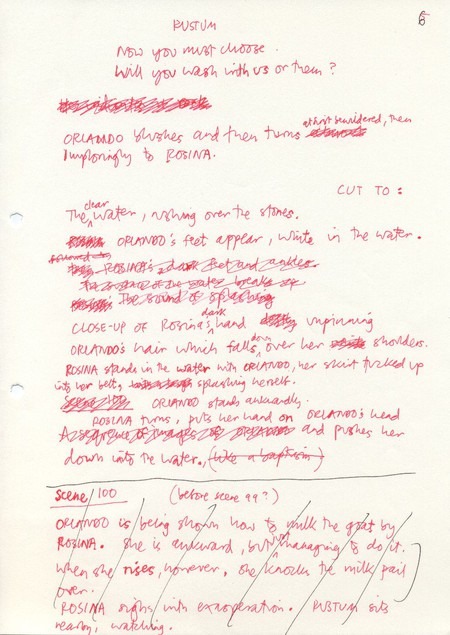 6
RUSTUM
Now you must choose.
Will you wash with us or them?
at first bewildered, then
ORLANDO blushes and then turns
imploringly to ROSINA.
CUT TO:
clear
The water, rushing over the stones.
ORLANDO's feet appear, white in the water.
followed by
ROSINA's dark feet and ankles
The surface of the water breaks
The sound of splashing
dark
CLOSE-UP of Rosina's hand unpinning
down
ORLANDO's hair which falls over her shoulders.
ROSINA stands in the water with ORLANDO, her skirt tucked up
into her belt, splashing herself.
ORLANDO stands awkwardly.
ROSINA turns, puts her hand on ORLANDO's head
A sequence of images of and pushes her
down into the water., (like a baptism)
Scene 100 (before scene 99?)
ORLANDO is being shown how to milk the goat by
ROSINA. She is awkward, but managing to do it.
When she rises, however, she knocks the milk pail
over.
ROSINA sighs with exasperation. RUSTUM sits
nearby, watching.